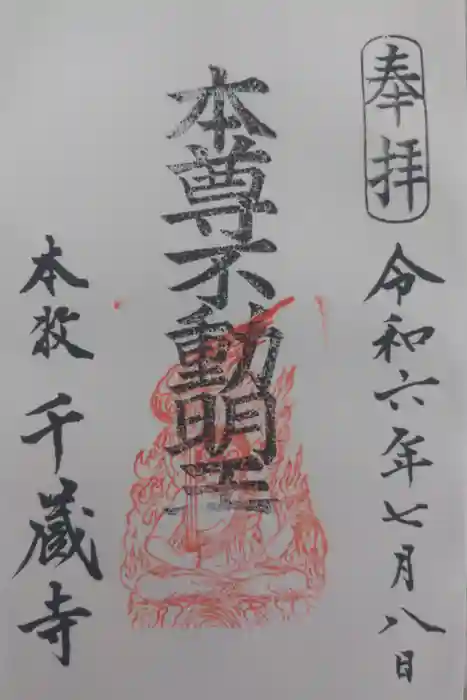 奉拝
令和六年七月八日
本尊不動明王
本牧 千蔵寺